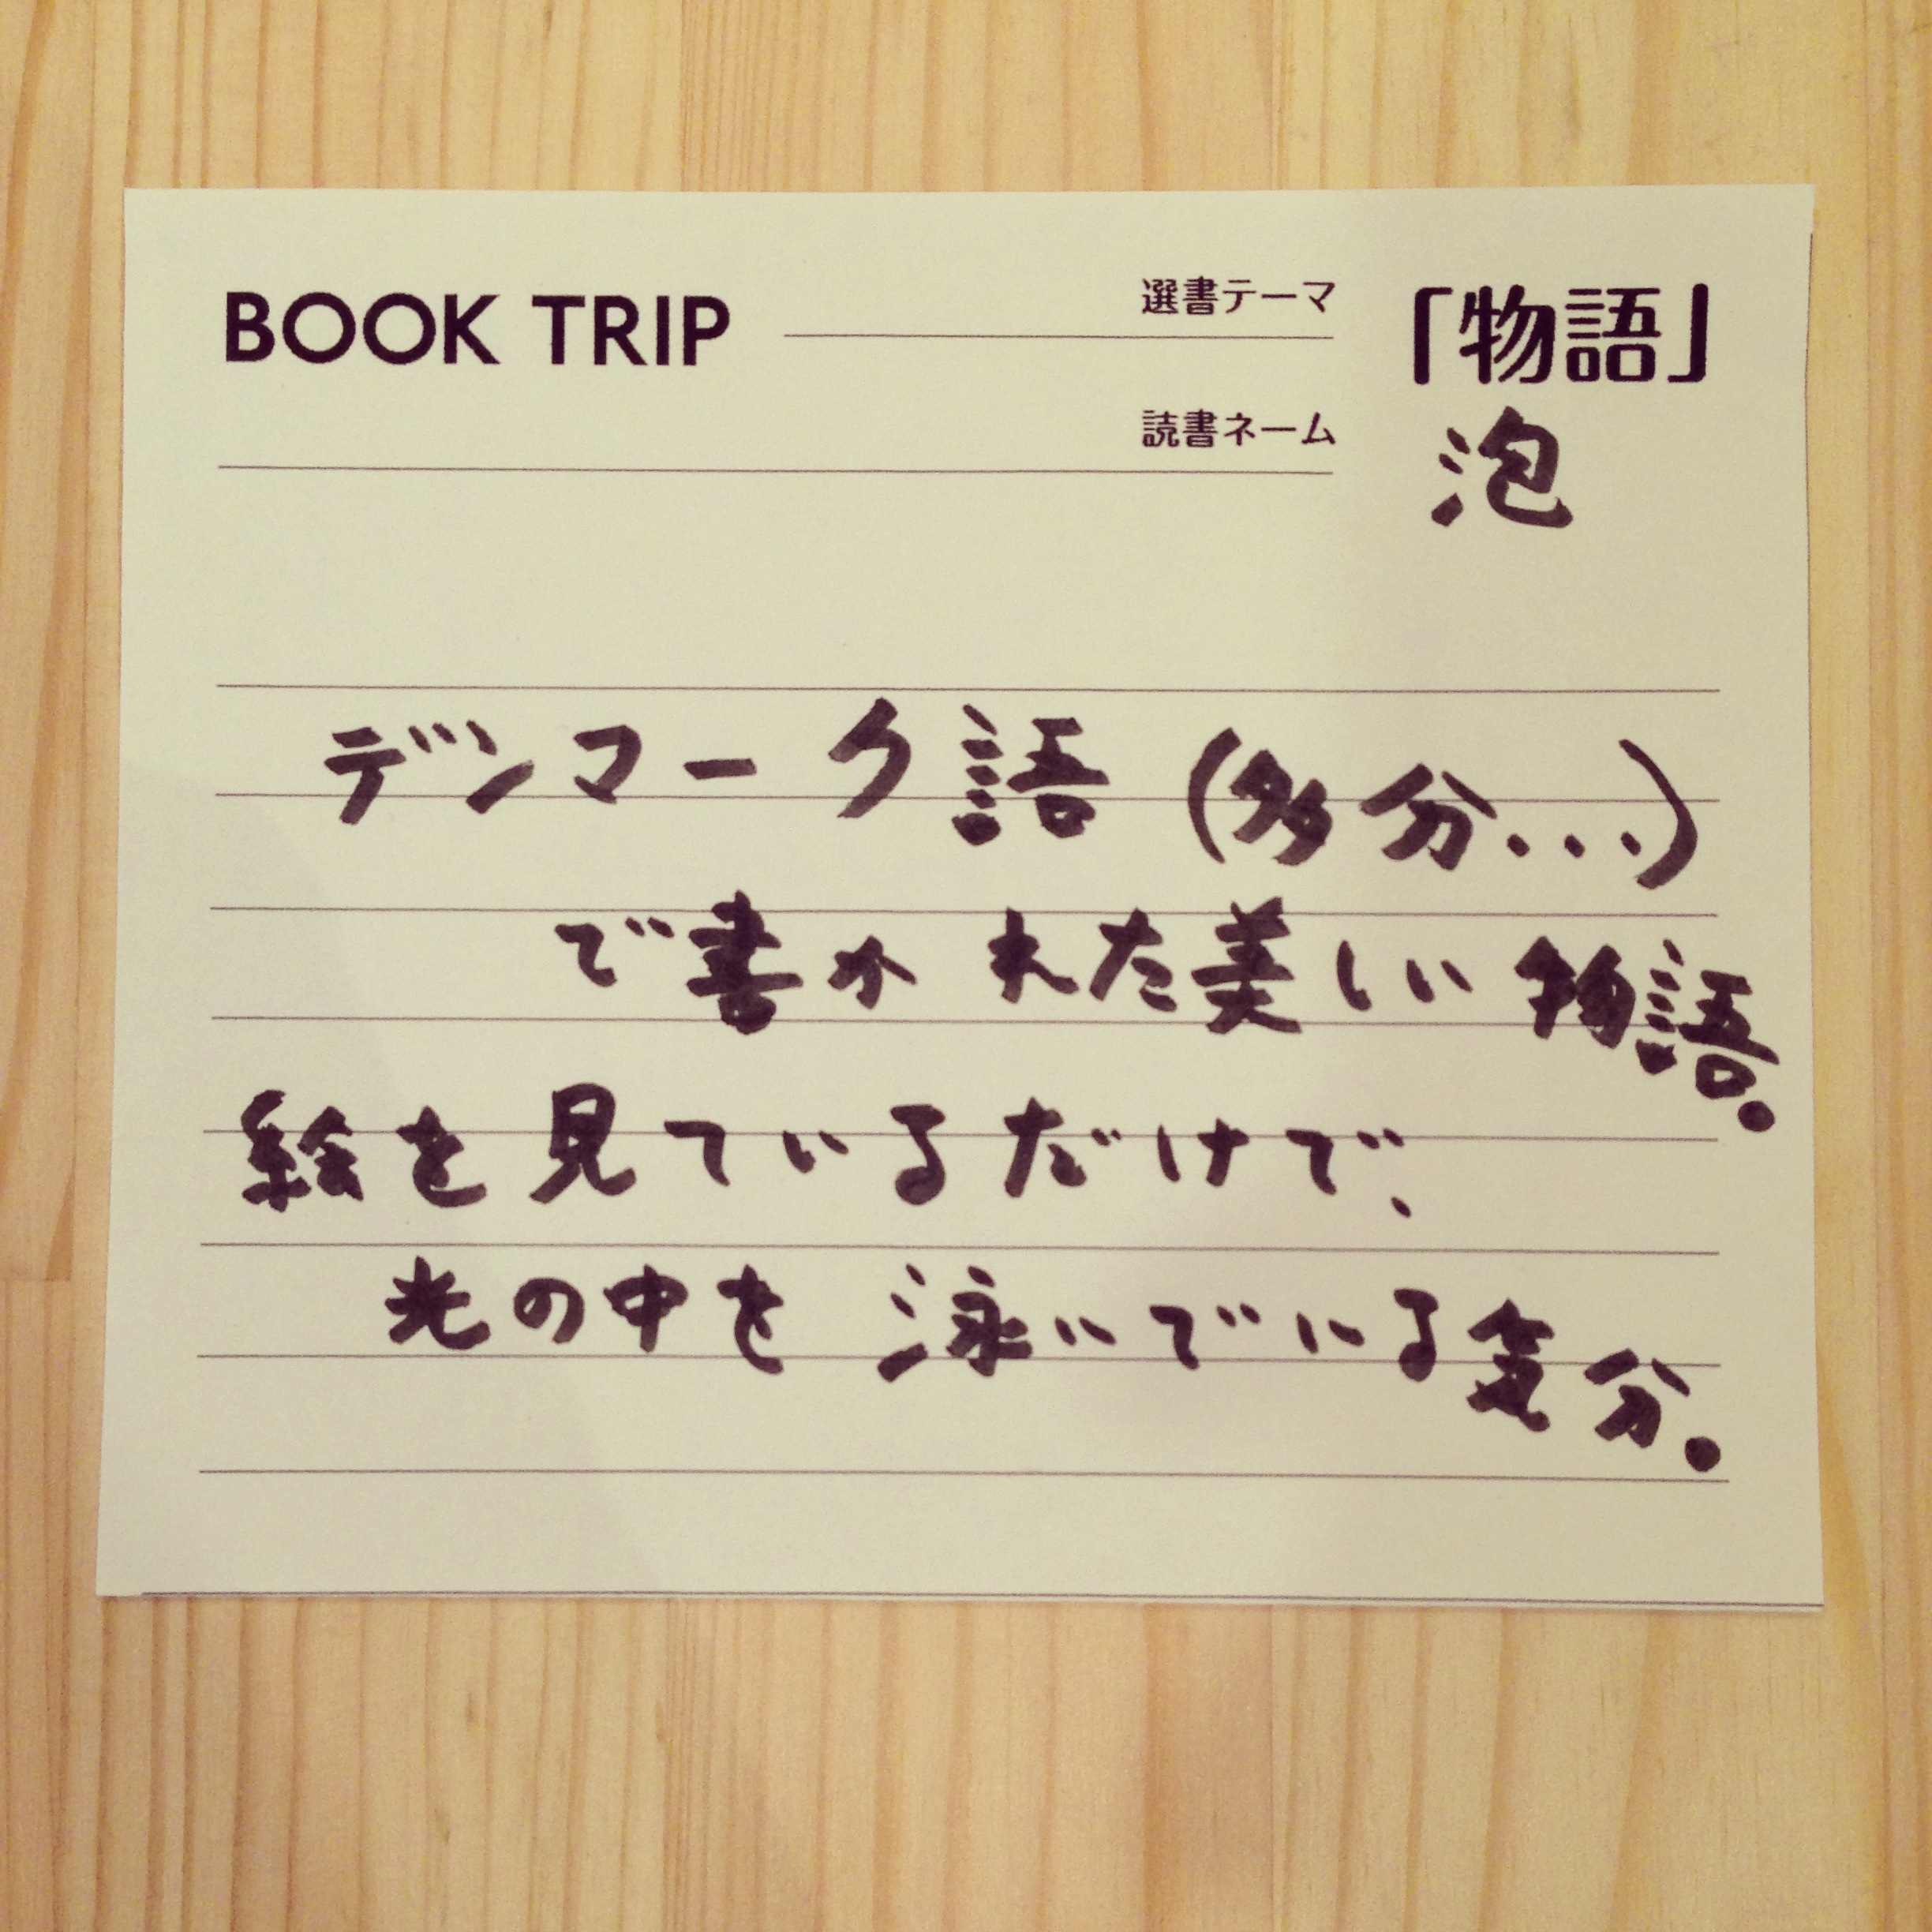 BOOK TRIP 選書テーマ 「物語」
読書ネーム 泡
デンマーク語(多分...)
で書かれた美しい物語。
絵を見ているだけで、
光の中を泳いでいる気分。